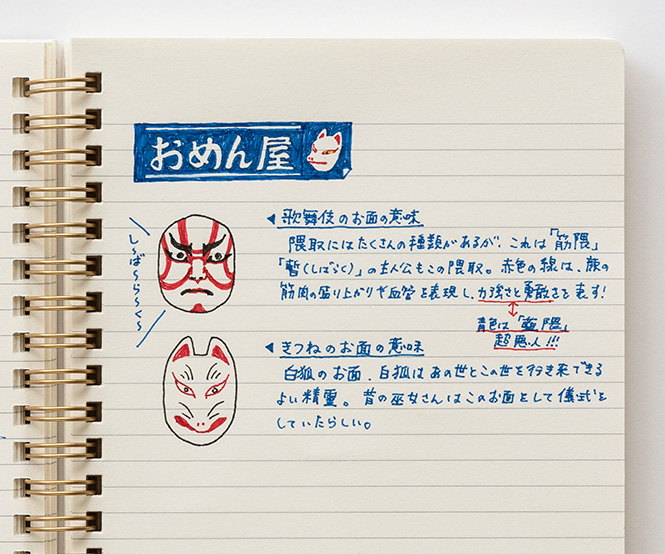 おめん屋
◀歌舞伎のお面の意味
し~ば~ら~く~
隈取にはたくさんの種類があるが、これは「筋隈」
「暫(しばらく)」の主人公もこの隈取。赤色の線は、顔の
筋肉の盛り上がりや血管を表現し、力強さと勇敢さを表す!
青色は「藍隈」
超悪人!!!
◀きつねのお面の意味
白狐のお面。白狐はあの世とこの世を行き来できる
よい精霊。昔の巫女さんはこのお面をして儀式を
していたらしい。